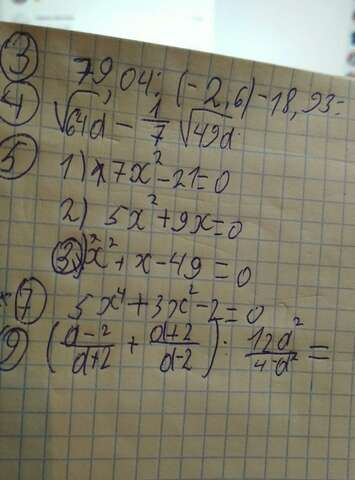 ③ 79,04 : (-2,6) - 18,93 =
④ √64a - 1/7 √49a
⑤ 1) 7x² - 21 = 0
2) 5x² + 9x = 0
3) x² + x - 49 = 0
⑦ 5x⁴ + 3x² - 2 = 0
⑨ ( a-2/a+2 + a+2/a-2 ) : 12a²/4-a² =